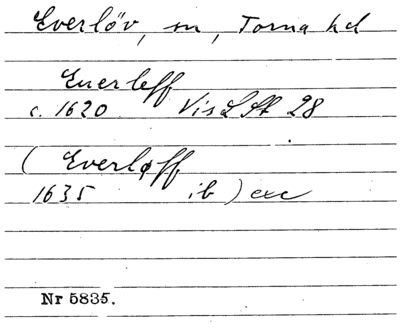 Everlöv, sn, Torna hd
Euerleff
c. 1620 Vis L St 28
( Everløff
1635 ib ) exc
Nr 5835.